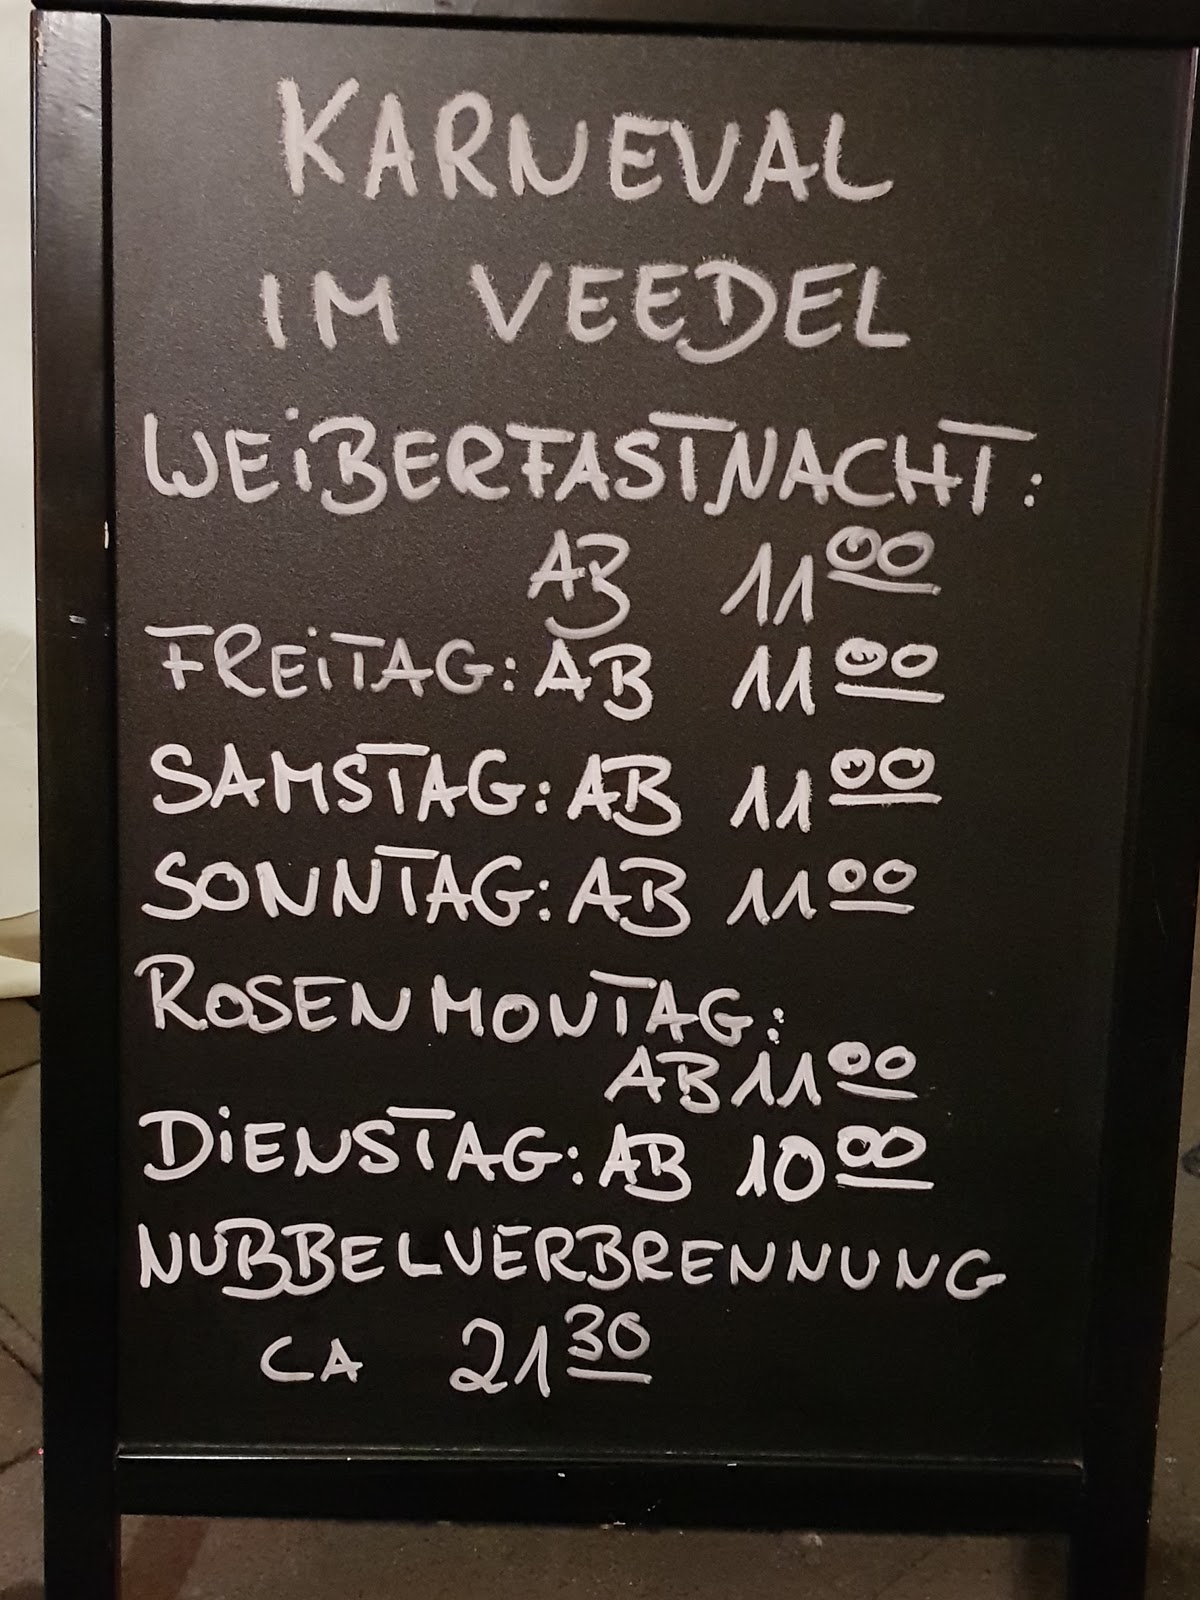 KARNEVAL
IM VEEDEL
WEiBERFASTNACHT:
AB 11 00
FREiTAG: AB 11 00
SAMSTAG: AB 11 00
SONNTAG: AB 11 00
ROSENMONTAG:
AB 11 00
DiENSTAG: AB 10 00
NUBBELVERBRENNUNG
CA 21 30